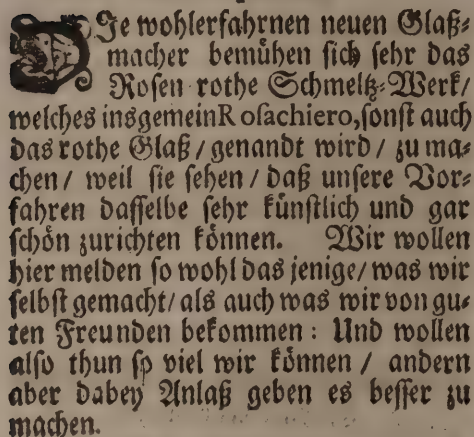 DIe wohlerfahrnen neuen Glaß-
macher bemühen sich sehr das
Rosen rothe Schmeltz-Werk/
welches insgemein Rosachiero, sonst auch
das rothe Glaß / genandt wird / zu ma-
chen / weil sie sehen / daß unsere Vor-
fahren dasselbe sehr künstlich und gar
schön zurichten können. Wir wollen
hier melden so wohl das jenige / was wir
selbst gemacht / als auch was wir von gu-
ten Freunden bekommen : Und wollen
also thun so viel wir können / andern
aber dabey Anlaß geben es besser zu
machen.